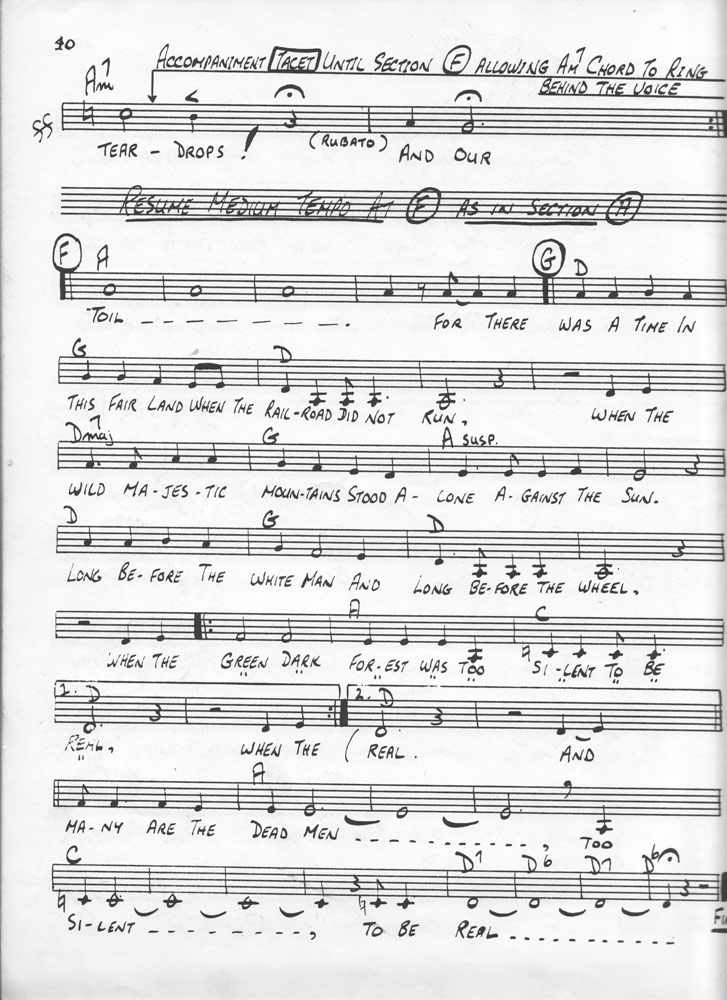 40
ACCOMPANIMENT TACET UNTIL SECTION F ALLOWING AM7 CHORD TO RING
BEHIND THE VOICE
Am7
TEAR - DROPS ! (RUBATO) AND OUR
RESUME MEDIUM TEMPO AT F AS IN SECTION A
F A G D
TOIL - - - - - - - . FOR THERE WAS A TIME IN
G D
THIS FAIR LAND WHEN THE RAIL-ROAD DID NOT RUN, WHEN THE
Dmaj7 G A SUSP.
WILD MA-JES-TIC MOUN-TAINS STOOD A-LONE A-GAINST THE SUN.
D G D
LONG BE-FORE THE WHITE MAN AND LONG BE-FORE THE WHEEL,
A C
WHEN THE GREEN DARK FOR-EST WAS TOO SI-LENT TO BE
1. D 2. D
REAL, WHEN THE ( REAL. AND
A
MA-NY ARE THE DEAD MEN - - - - - - - - - - - , TOO
C D7 D6 D7 D6
SI-LENT - - - - - - - - - - , TO BE REAL - - - - - - - - - -